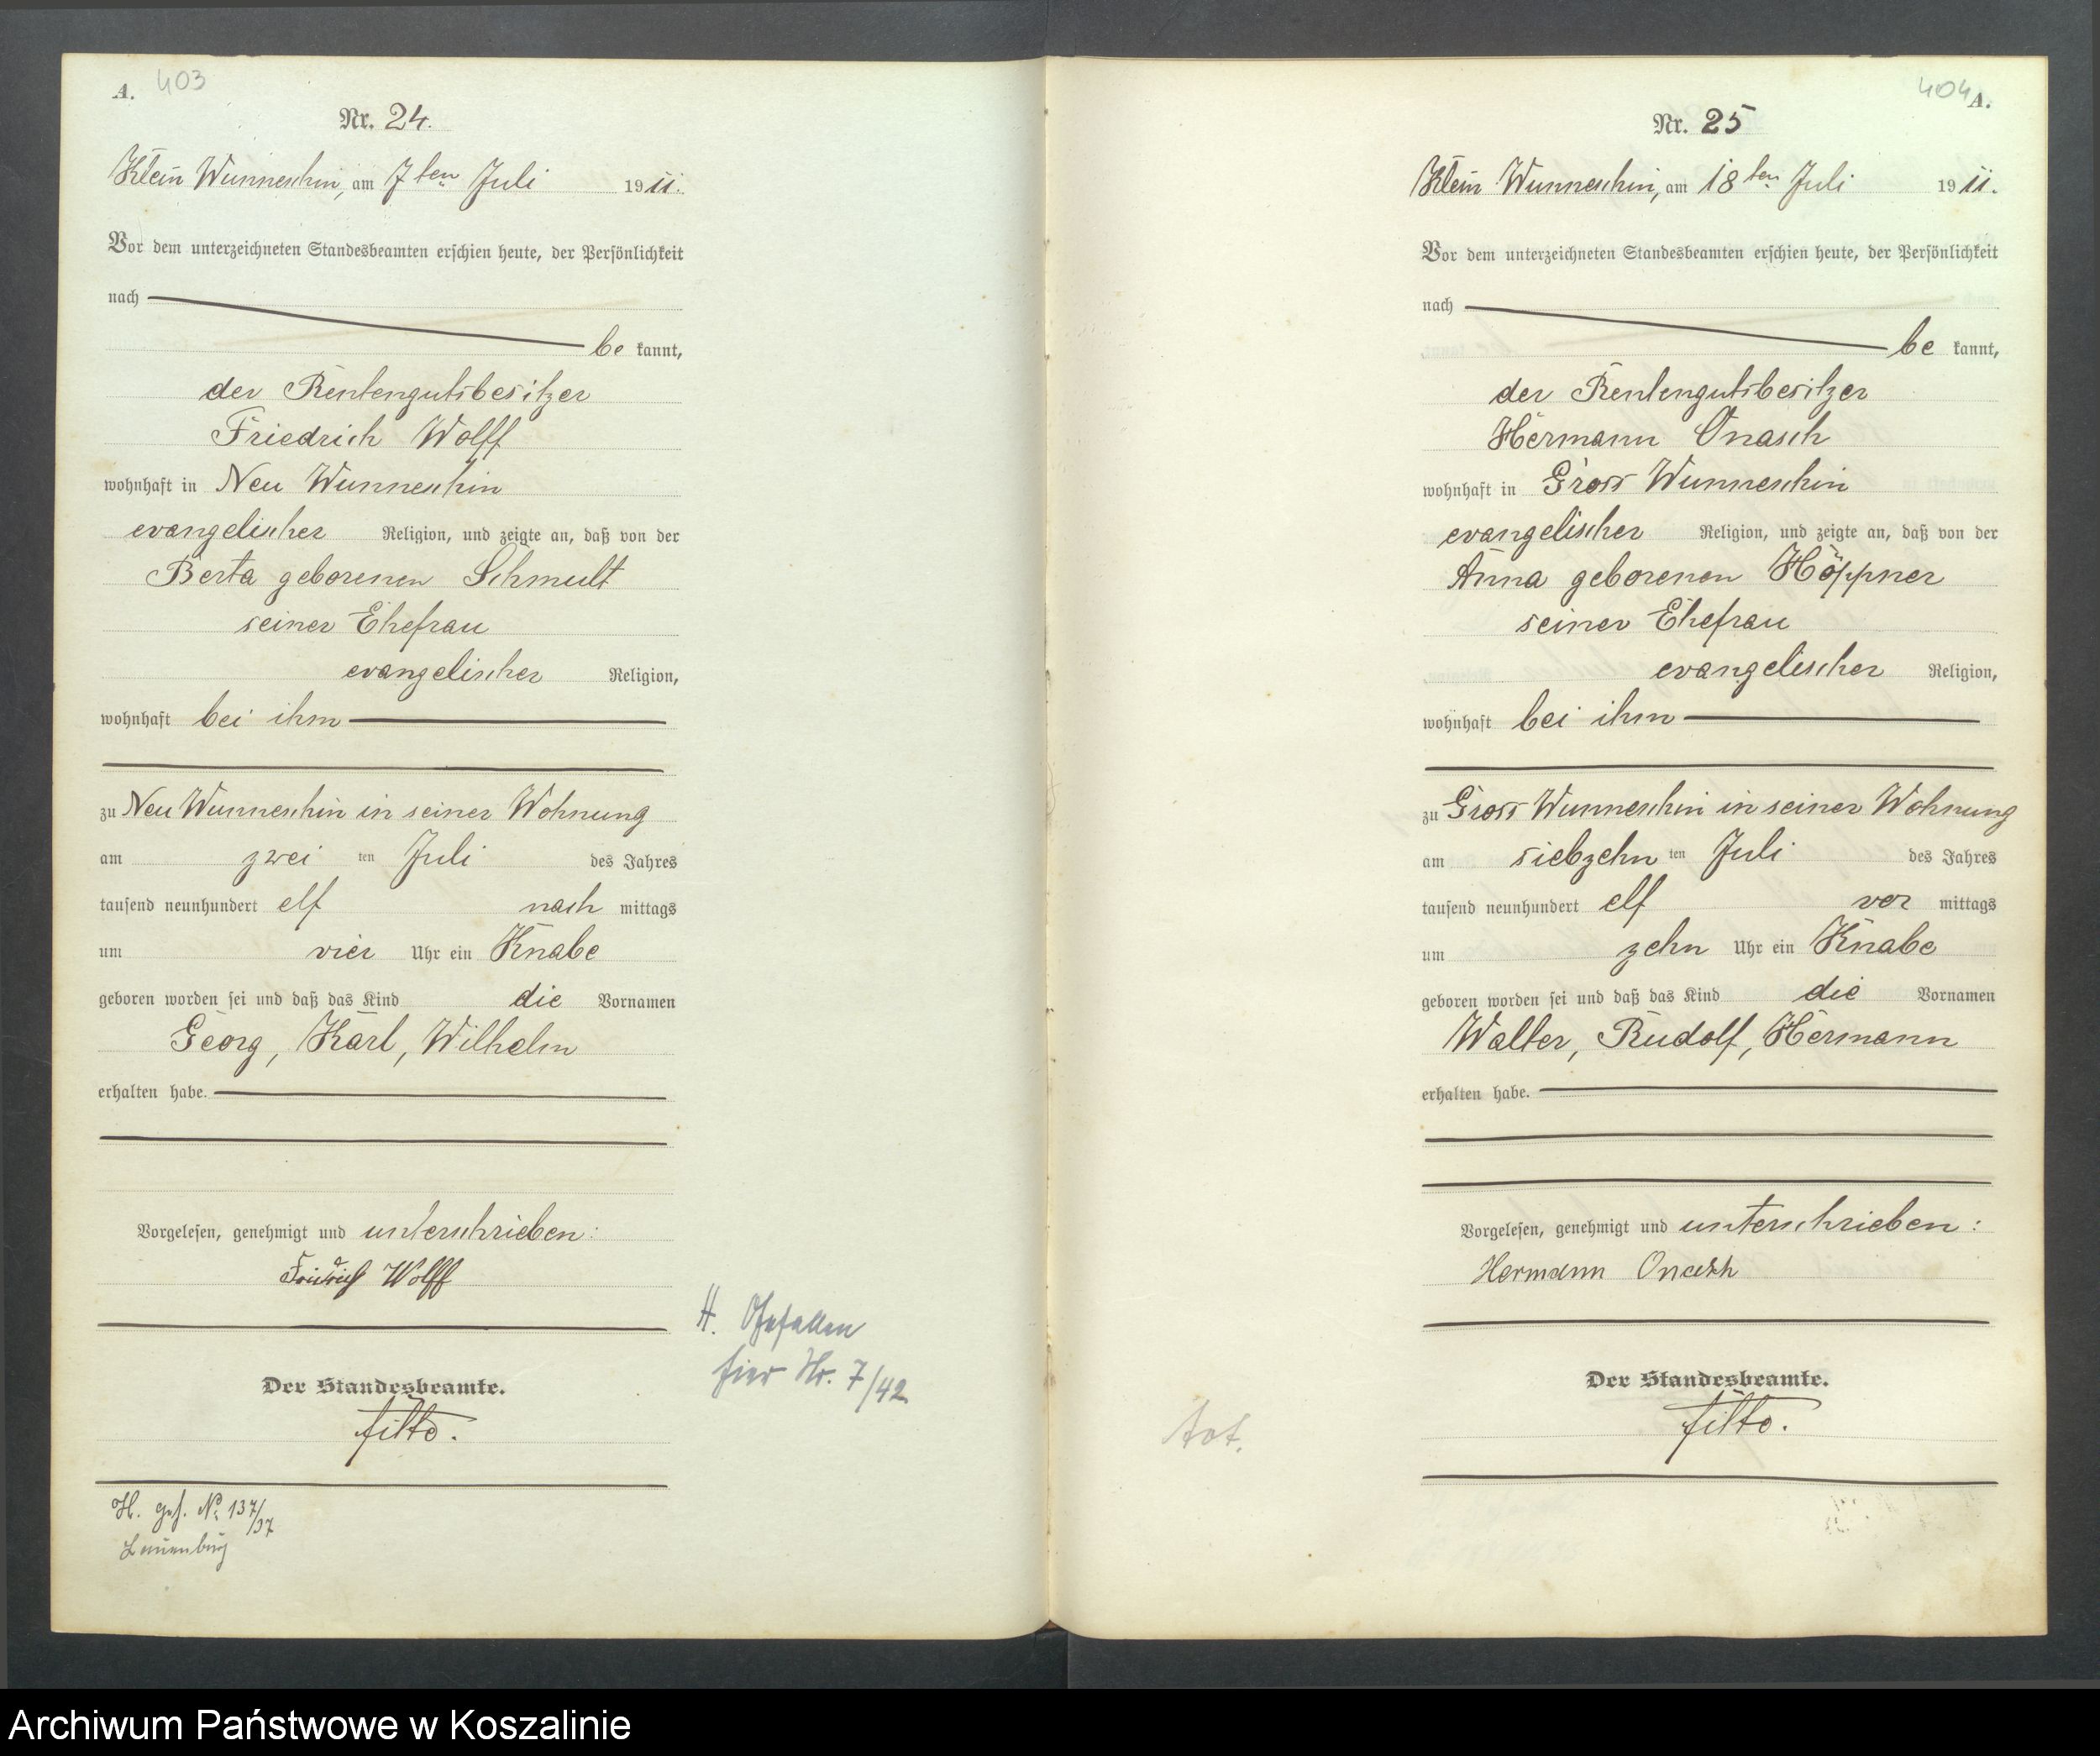 A. 403
Nr. 24.
Klein Wunneschin, am 7ten Juli 1911.
Vor dem unterzeichneten Standesbeamten erschien heute, der Persönlichkeit
nach
be kannt,
der Rentengutsbesitzer
Friedrich Wolff
wohnhaft in Neu Wunneschin
evangelischer Religion, und zeigte an, daß von der
Berta geborenen Schmult
seiner Ehefrau
evangelischer Religion,
wohnhaft bei ihm
zu Neu Wunneschin in seiner Wohnung
am zwei ten Juli des Jahres
tausend neunhundert elf nach mittags
um vier Uhr ein Knabe
geboren worden sei und daß das Kind die Vornamen
Georg, Karl, Wilhelm
erhalten habe.
Vorgelesen, genehmigt und unterschrieben:
Friedrich Wolff
Der Standesbeamte.
H. Gefallen
hier Nr. 7/42
H. gesch. No. 137/37
Lauenburg
404 A.
Nr. 25
Klein Wunneschin, am 18ten Juli 1911.
Vor dem unterzeichneten Standesbeamten erschien heute, der Persönlichkeit
nach
be kannt,
der Rentengutsbesitzer
Hermann Onasch
wohnhaft in Gross Wunneschin
evangelischer Religion, und zeigte an, daß von der
Anna geborenen Höppner
seiner Ehefrau
evangelischer Religion,
wohnhaft bei ihm
zu Gross Wunneschin in seiner Wohnung
am siebzehn ten Juli des Jahres
tausend neunhundert elf vor mittags
um zehn Uhr ein Knabe
geboren worden sei und daß das Kind die Vornamen
Walter, Rudolf, Hermann
erhalten habe.
Vorgelesen, genehmigt und unterschrieben:
Hermann Onasch
Der Standesbeamte.
tot.
Archiwum Państwowe w Koszalinie